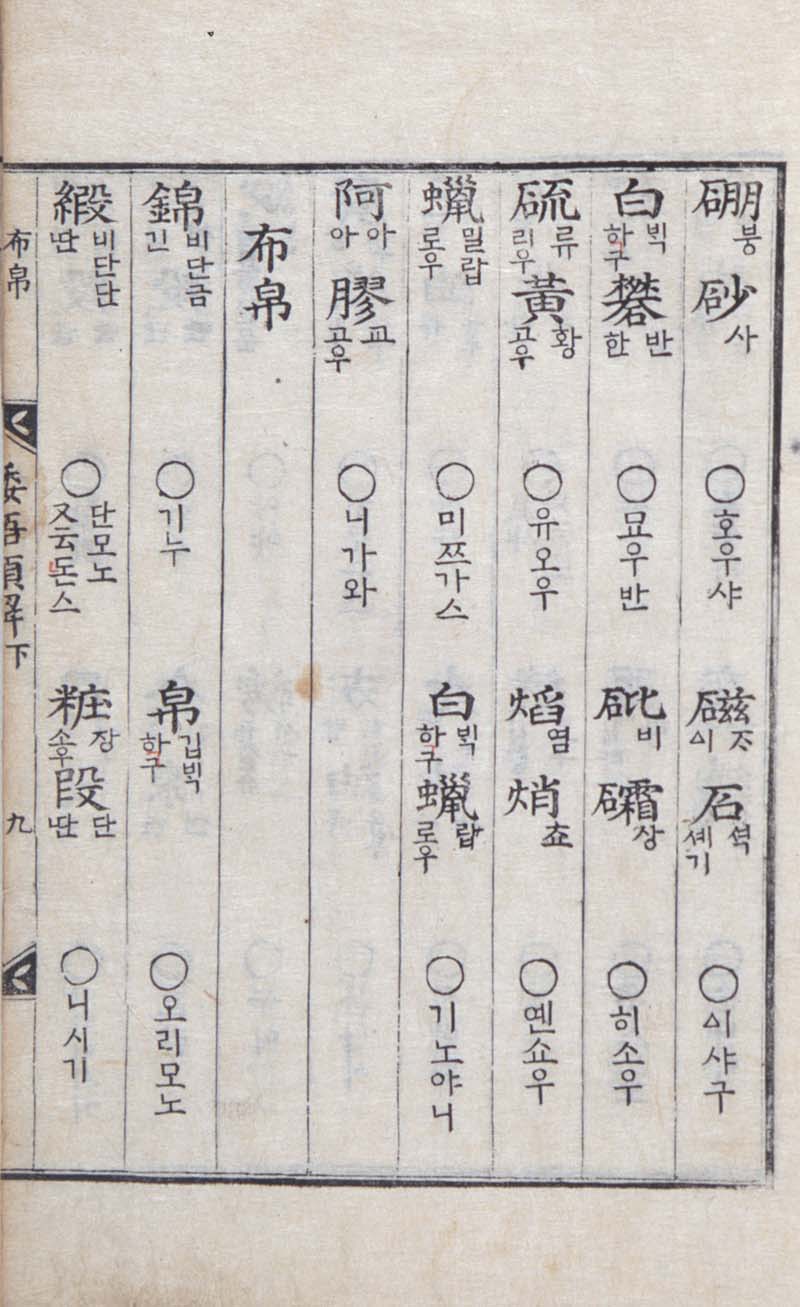 硼붕砂사○호우샤 磁ᄌᆞᅀᅵ石셕셰기○ᅀᅵ샤구
白ᄇᆡᆨ하구礬반한○묘우반 砒비礵상○히소우
硫류리우黃황고우○유오우 焰염焇쵸○옌쇼우
蠟밀랍로우○미ᄯᅳ가스 白ᄇᆡᆨ하구蠟랍로우○기노야니
阿아아膠교고우○니가와
布帛
錦비단금긴○기누 帛깁ᄇᆡᆨ하구○오리모노
緞비단단ᄯᅡᆫ○단모노又云돈스 粧장소우段단ᄯᅡᆫ○니시기
布帛 倭語類解下 九